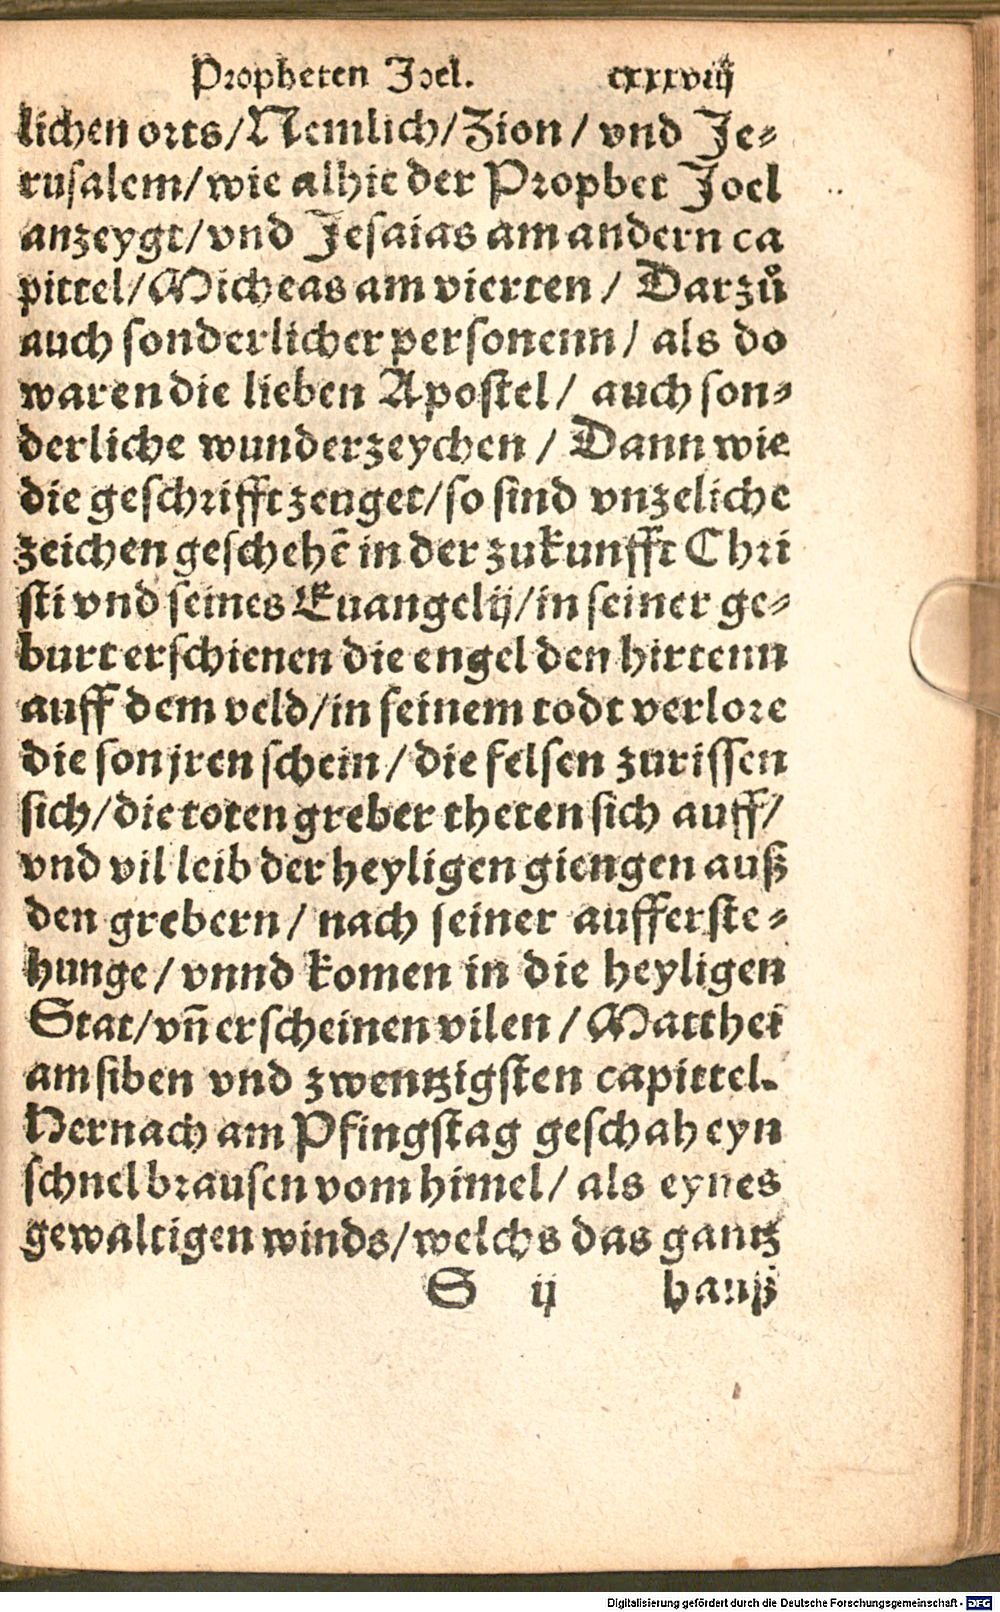 Propheten Joel. cxxxviij
lichen orts/Nemlich/Zion/ vnd Je⸗
rusalem/wie alhie der Prophet Joel
anzeygt/vnd Jesaias am andern ca
pittel/Micheas am vierten/ Darzů
auch sonderlicher personenn/ als do
waren die lieben Apostel/ auch son⸗
derliche wunderzeychen/ Dann wie
die geschrifft zeuget/so sind vnzeliche
zeichen geschehē in der zukunfft Chri
sti vnd seines Euangelij/in seiner ge⸗
burt erschienen die engel den hirtenn
auff dem veld/in seinem todt verlore
die son jren schein/die felsen zurissen
sich/die toten greber theten sich auff/
vnd vil leib der heyligen giengen auß
den grebern/ nach seiner aufferste⸗
hunge/ vnnd komen in die heyligen
Stat/vñ erscheinen vilen/Matthei
am siben vnd zwentzigsten capittel.
Hernach am Pfingstag geschah eyn
schnel brausen vom himel/ als eynes
gewaltigen winds/welchs das gantz
S ij hauß
Digitalisierung gefördert durch die Deutsche Forschungsgemeinschaft - DFG